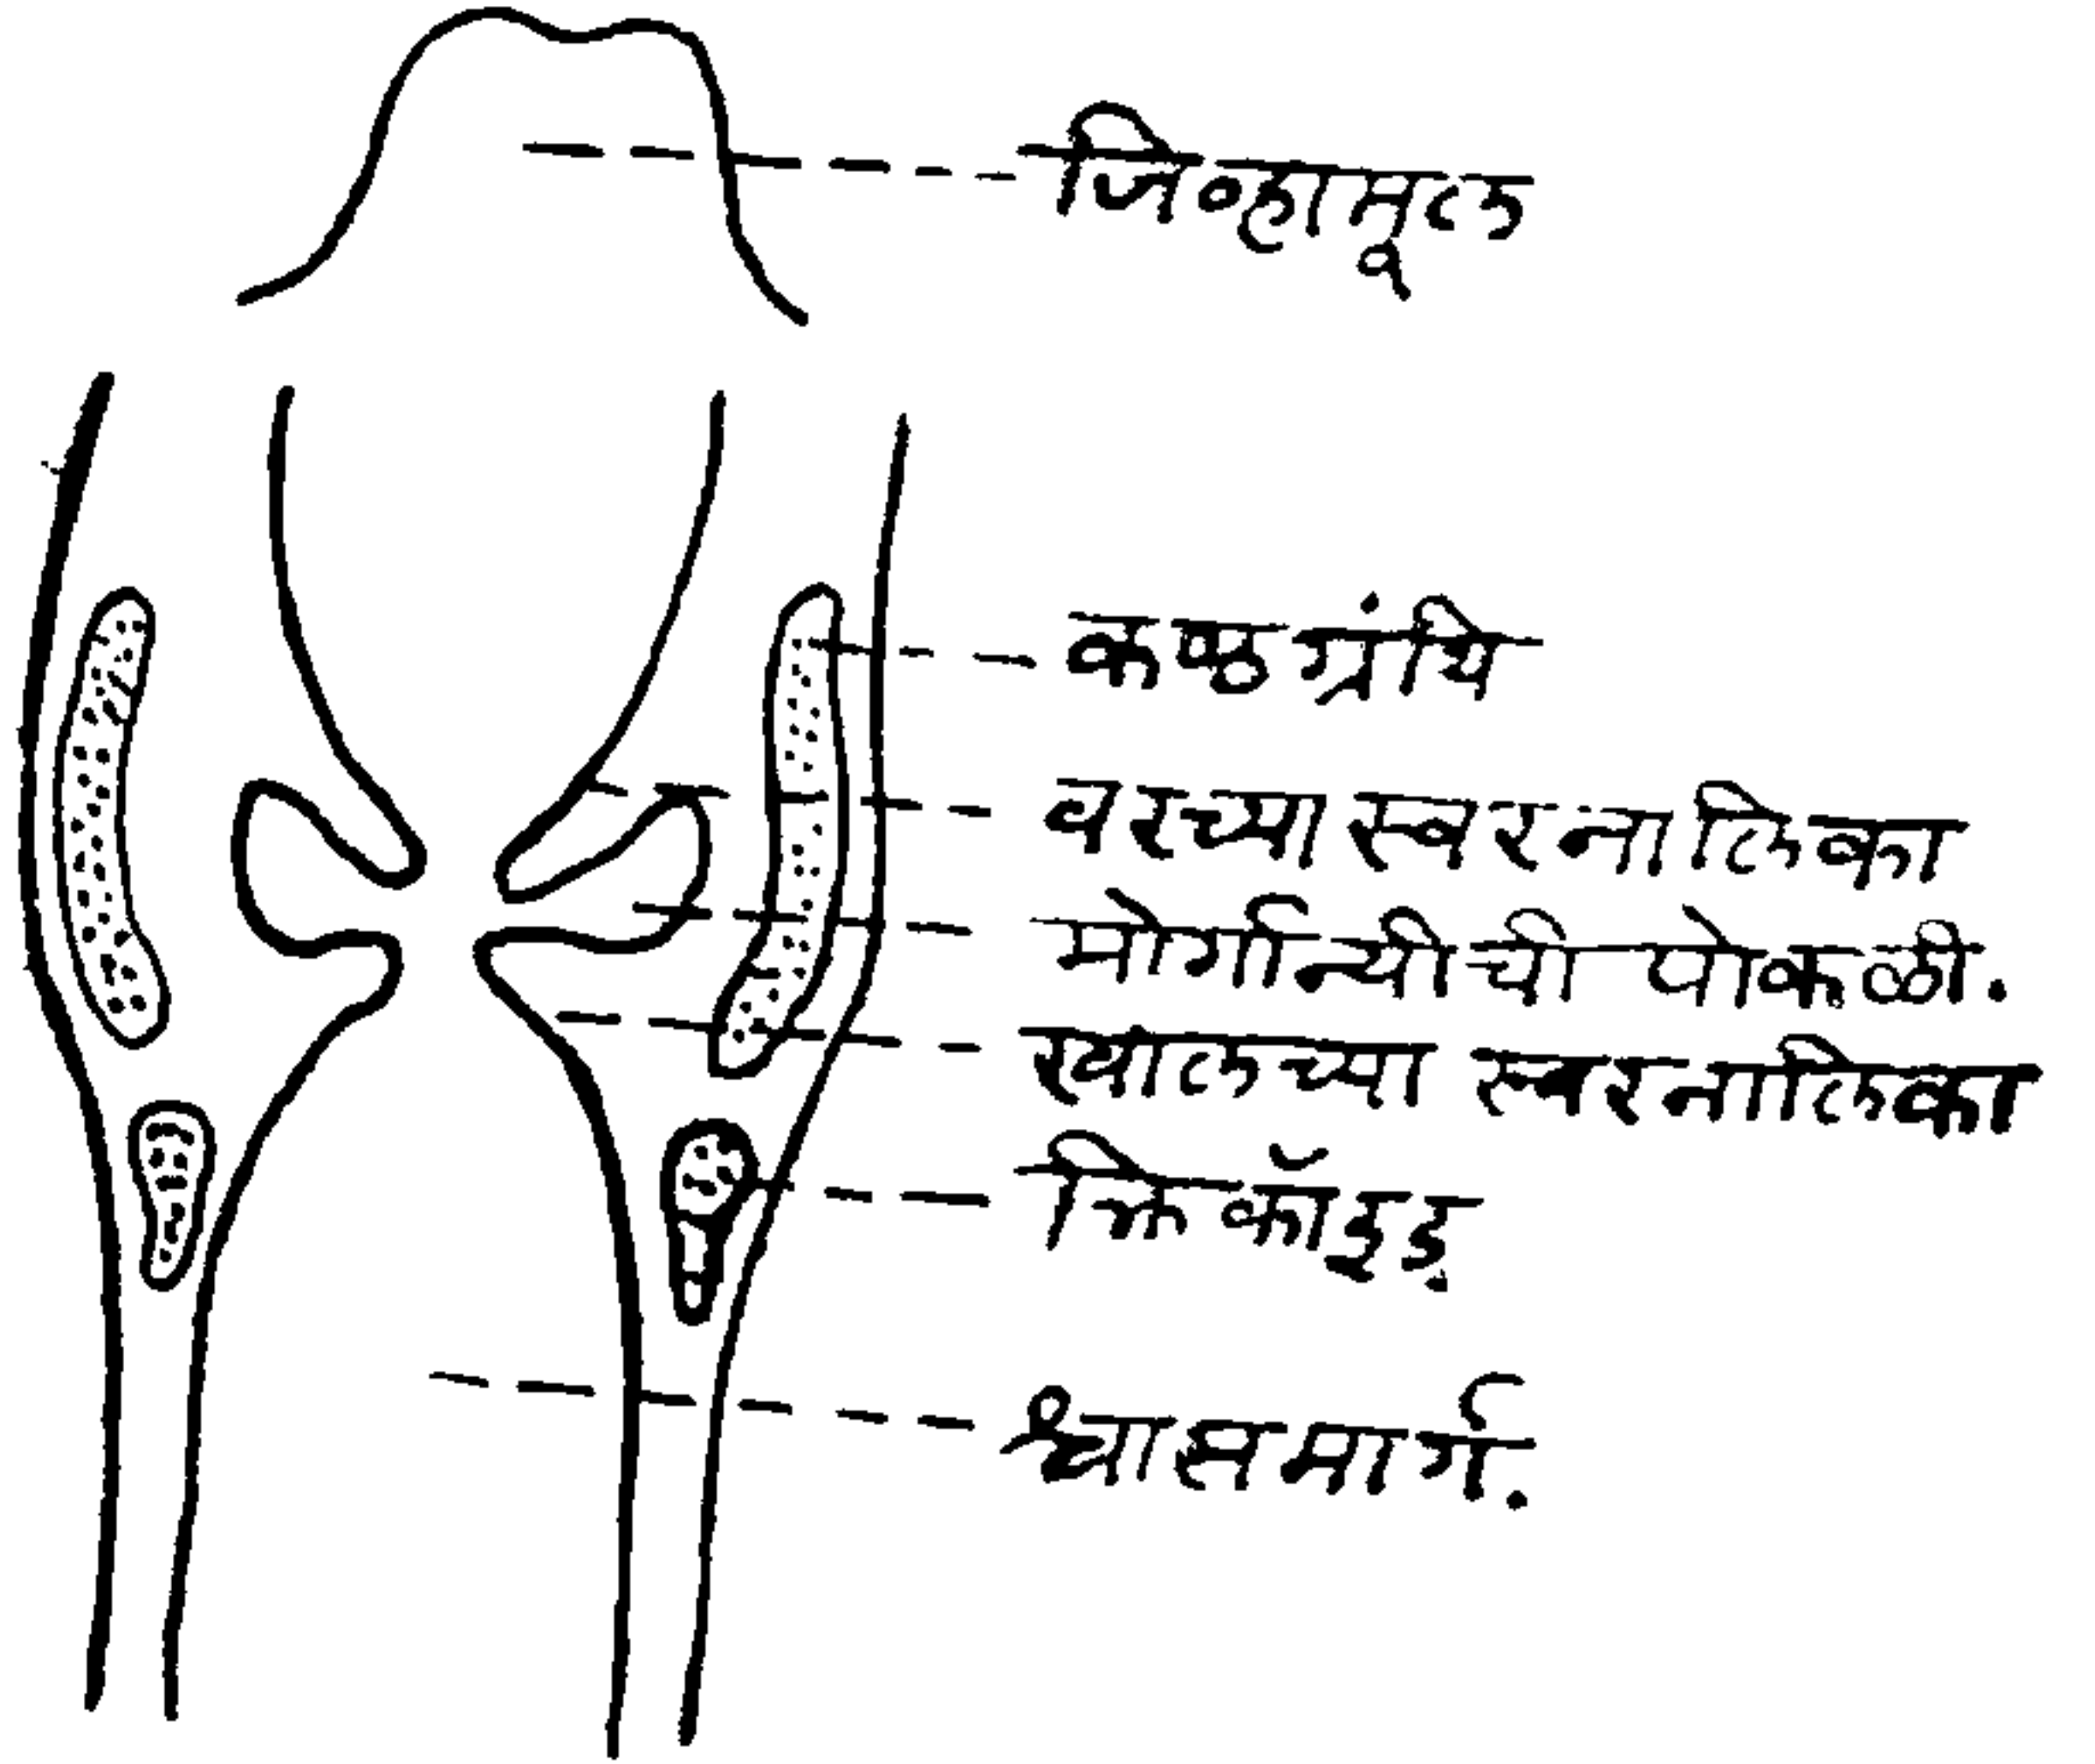 जिव्हामूल
कण्ठग्रंथि
वरच्या स्वरनालिका
मोर्गान्यीची पोकळी.
खालच्या स्वरनालिका
क्रिकॉइड
श्वासमार्ग.